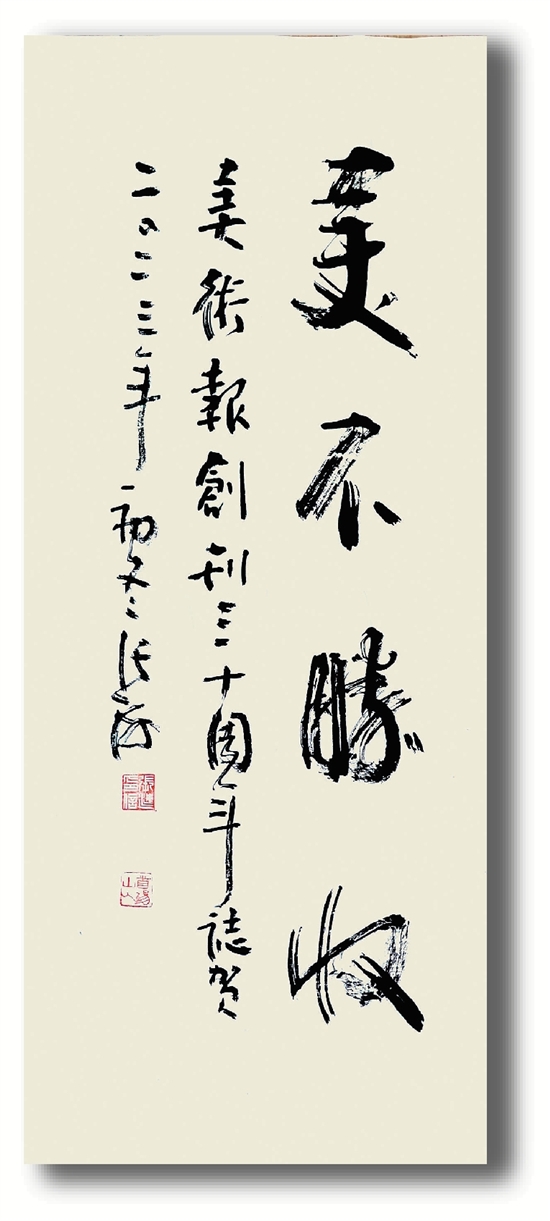 美不勝收
美術報創刊三十周年誌賀
二〇二三年初冬張海